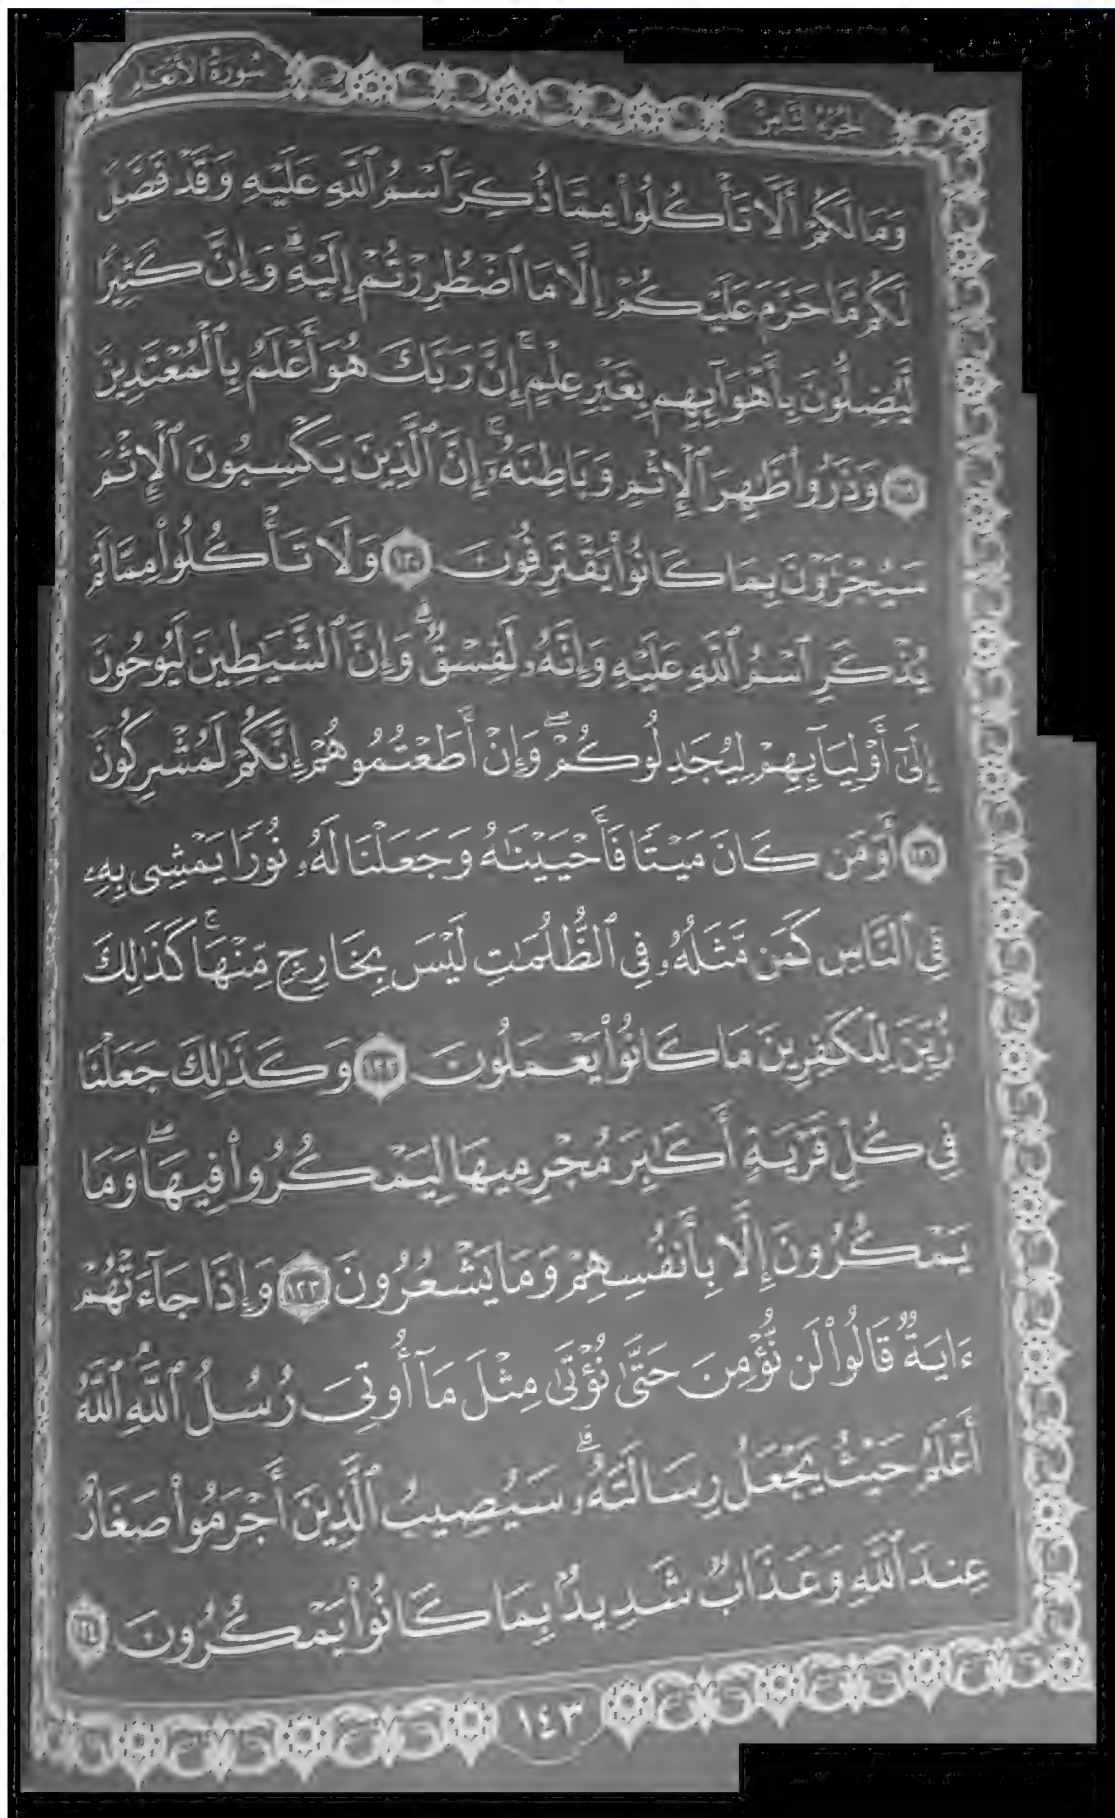 سُورَةُ الأَنْعَامِ
الجُزْءُ الثَّامِنُ
وَمَا لَكُمْ أَلَّا تَأْكُلُوا۟ مِمَّا ذُكِرَ ٱسْمُ ٱللَّهِ عَلَيْهِ وَقَدْ فَصَّلَ
لَكُم مَّا حَرَّمَ عَلَيْكُمْ إِلَّا مَا ٱضْطُرِرْتُمْ إِلَيْهِ ۗ وَإِنَّ كَثِيرًا
لَّيُضِلُّونَ بِأَهْوَآئِهِم بِغَيْرِ عِلْمٍ ۗ إِنَّ رَبَّكَ هُوَ أَعْلَمُ بِٱلْمُعْتَدِينَ
١١٩ وَذَرُوا۟ ظَٰهِرَ ٱلْإِثْمِ وَبَاطِنَهُۥٓ ۚ إِنَّ ٱلَّذِينَ يَكْسِبُونَ ٱلْإِثْمَ
سَيُجْزَوْنَ بِمَا كَانُوا۟ يَقْتَرِفُونَ ١٢٠ وَلَا تَأْكُلُوا۟ مِمَّا لَمْ
يُذْكَرِ ٱسْمُ ٱللَّهِ عَلَيْهِ وَإِنَّهُۥ لَفِسْقٌ ۗ وَإِنَّ ٱلشَّيَٰطِينَ لَيُوحُونَ
إِلَىٰٓ أَوْلِيَآئِهِمْ لِيُجَٰدِلُوكُمْ ۖ وَإِنْ أَطَعْتُمُوهُمْ إِنَّكُمْ لَمُشْرِكُونَ
١٢١ أَوَمَن كَانَ مَيْتًا فَأَحْيَيْنَٰهُ وَجَعَلْنَا لَهُۥ نُورًا يَمْشِى بِهِۦ
فِى ٱلنَّاسِ كَمَن مَّثَلُهُۥ فِى ٱلظُّلُمَٰتِ لَيْسَ بِخَارِجٍ مِّنْهَا ۚ كَذَٰلِكَ
زُيِّنَ لِلْكَٰفِرِينَ مَا كَانُوا۟ يَعْمَلُونَ ١٢٢ وَكَذَٰلِكَ جَعَلْنَا
فِى كُلِّ قَرْيَةٍ أَكَٰبِرَ مُجْرِمِيهَا لِيَمْكُرُوا۟ فِيهَا ۖ وَمَا
يَمْكُرُونَ إِلَّا بِأَنفُسِهِمْ وَمَا يَشْعُرُونَ ١٢٣ وَإِذَا جَآءَتْهُمْ
ءَايَةٌ قَالُوا۟ لَن نُّؤْمِنَ حَتَّىٰ نُؤْتَىٰ مِثْلَ مَآ أُوتِىَ رُسُلُ ٱللَّهِ ۘ ٱللَّهُ
أَعْلَمُ حَيْثُ يَجْعَلُ رِسَالَتَهُۥ ۗ سَيُصِيبُ ٱلَّذِينَ أَجْرَمُوا۟ صَغَارٌ
عِندَ ٱللَّهِ وَعَذَابٌ شَدِيدٌۢ بِمَا كَانُوا۟ يَمْكُرُونَ ١٢٤
١٤٣